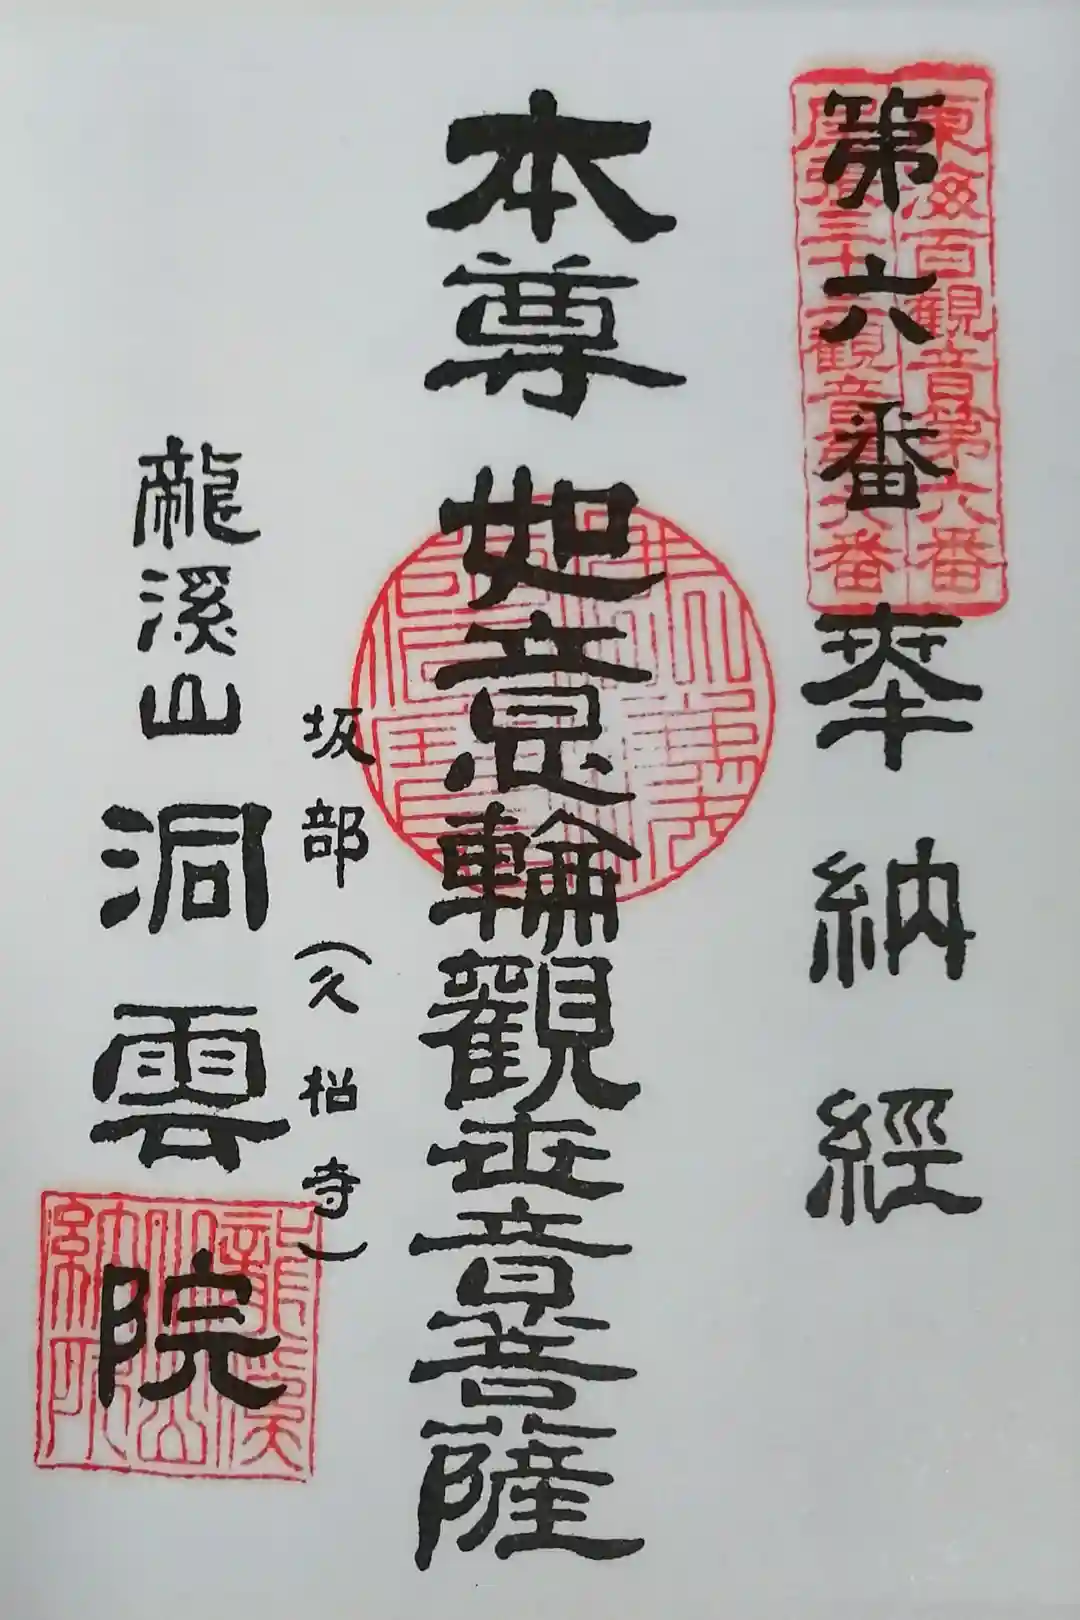 東海百観音第六番
尾張三十三観音第六番
第六番 奉納經
本尊 如意輪觀世音菩薩
坂部(久松寺)
龍溪山 洞雲院
龍溪
山
納所